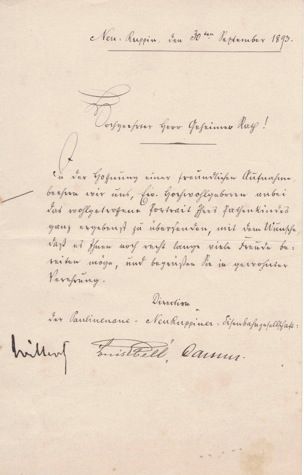 Neu-Ruppin, den 30ten September 1893.
Hochgeehrter Herr Geheimer Rath!
In der Hoffnung einer freundlichen Aufnahme
beehren wir uns, Ew. Hochwohlgeboren anbei
das wohlgetroffene Portrait Ihres Pathenkindes
ganz ergebenst zu übersenden, mit dem Wunsche,
daß es Ihnen noch recht lange viele Freude be-
reiten möge, und begrüßen Sie in gewohnter
Verehrung.
Direction
der Paulinenaue-Neuruppiner-Eisenbahngesellschaft.